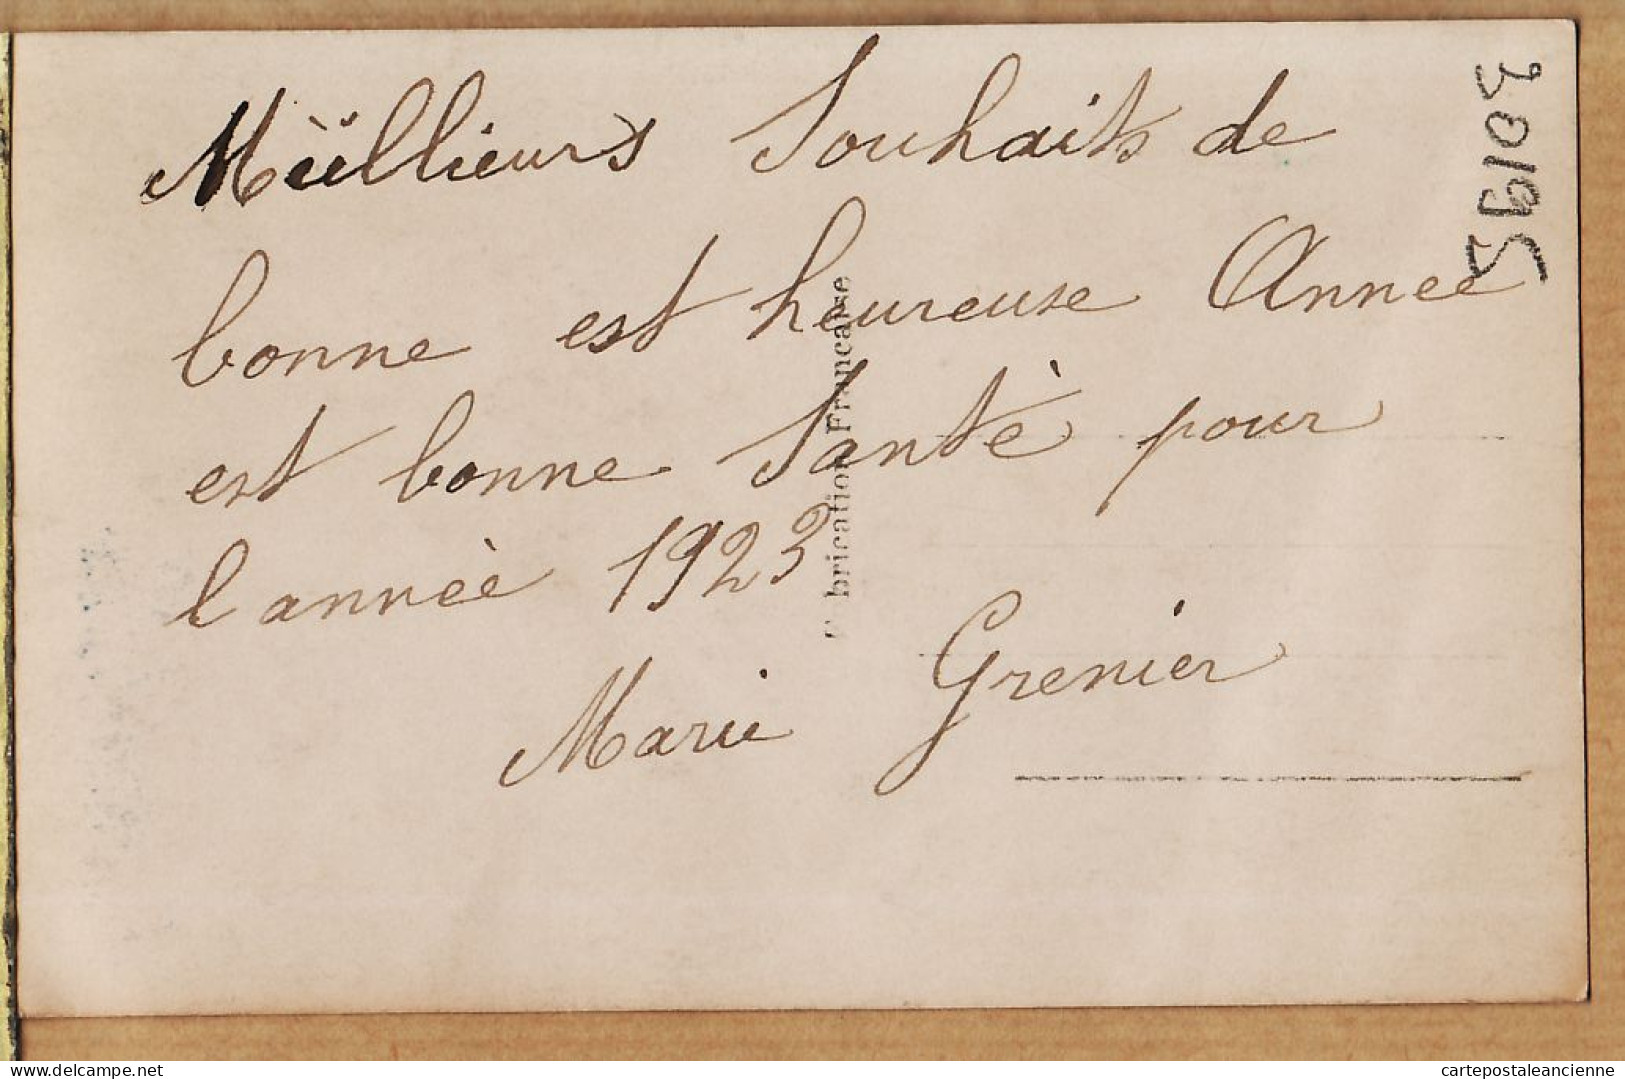 Meïllieurs Souhaits de
bonne est heureuse Année
est bonne Santè pour
l'annèe 1923
Marie Grenier
brication Française
30195
delcampe.net
cartepostaleancienne